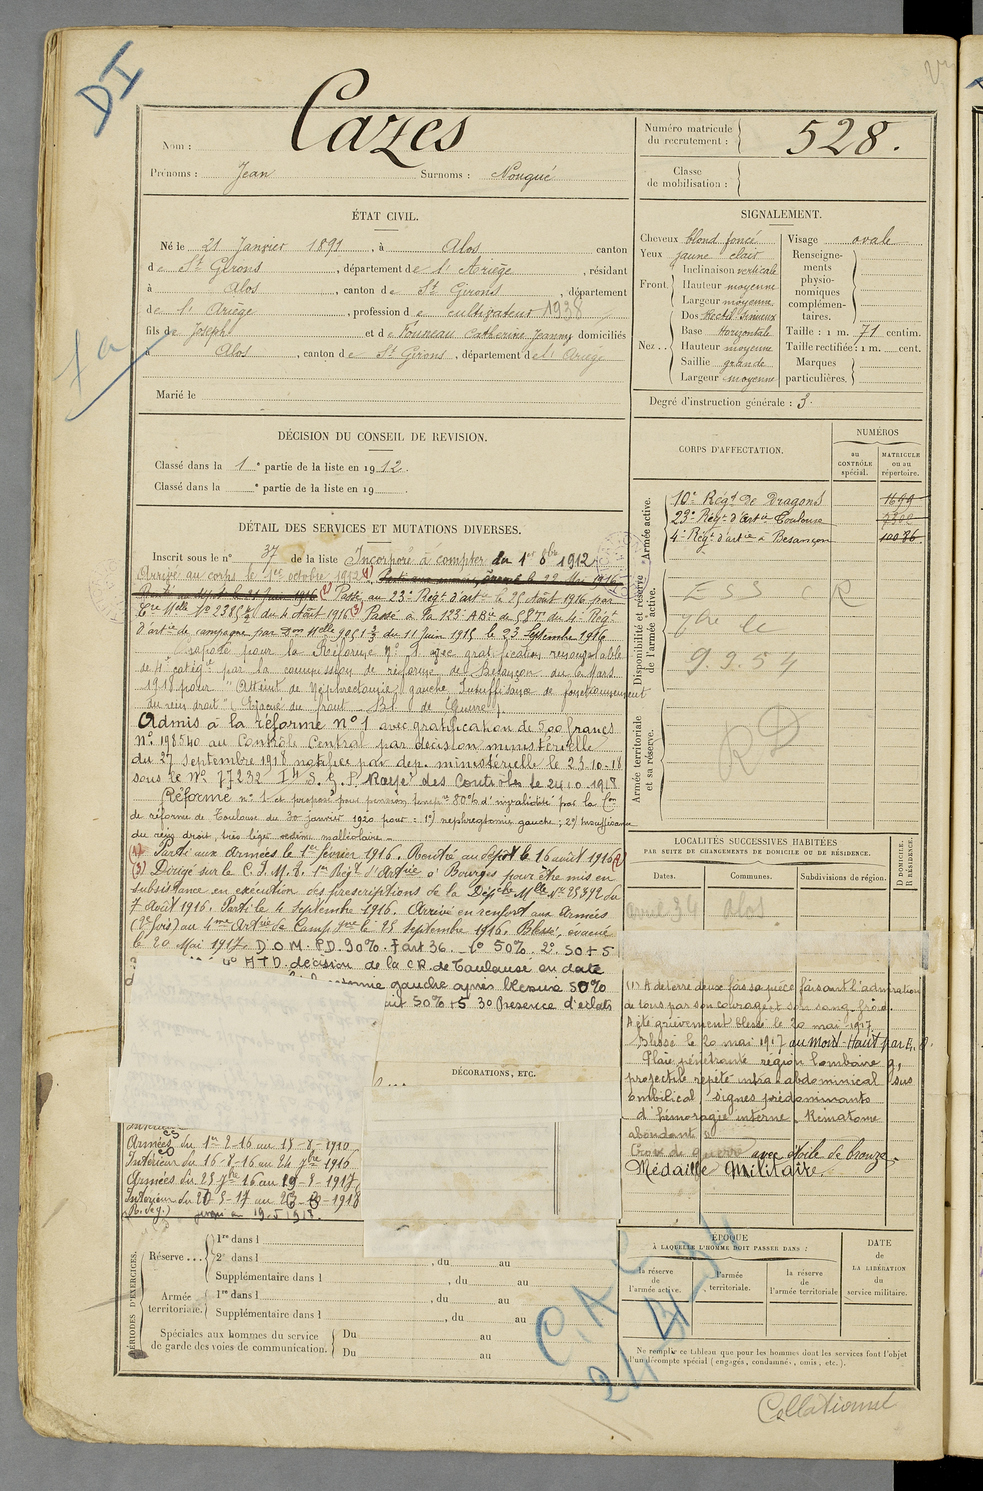 DI
Nom : Cazes
Prénoms : Jean Surnoms : Nougué
Numéro matricule du recrutement : 528.
Classe de mobilisation :
ÉTAT CIVIL.
Né le 21 Janvier 1891, à Alos canton
de St Girons, département de l'Ariège, résidant
à Alos, canton de St Girons, département
de l'Ariège, profession de cultivateur 1938
fils de Joseph et de Catherine Jeanne domiciliés
à Alos, canton de St Girons, département de l'Ariège
Marié le
SIGNALEMENT.
Cheveux blond foncé
Yeux jaune clair
Front. Inclinaison verticale
Hauteur moyenne
Largeur moyenne
Nez.. Dos Rectil. Sinueux
Base Horizontale
Hauteur moyenne
Saillie grande
Largeur moyenne
Visage ovale
Renseignements physionomiques complémentaires.
Taille : 1 m. 71 centim.
Taille rectifiée : 1 m. cent.
Marques particulières.
Degré d'instruction générale : 3.
DÉCISION DU CONSEIL DE REVISION.
Classé dans la 1e partie de la liste en 1912.
Classé dans la e partie de la liste en 19
DÉTAIL DES SERVICES ET MUTATIONS DIVERSES.
Inscrit sous le n° 37 de la liste Incorporé à compter du 1er 8bre 1912.
Arrivé au corps le 1er octobre 1912. (1)
(2) Passé au 23e Régt d'artie le 25 Août 1916 par
du 4 Août 1916 (3) Passé à la 123e ABie de 58T du 4e Régt
d'artie de campagne par Don Melle du 11 Juin 1915 le 23 Septembre 1916
pour la Réforme n° 1 avec gratification renouvelable
de 4e catégie par la commission de réforme de Besançon du 6 Mars
1918 pour "Atteint de Néphrectomie gauche, Insuffisance de fonctionnement
du rein droit" (Evacué du front - Bl. de Guerre).
Admis à la réforme n° 1 avec gratification de 500 francs
N° 198540 au Contrôle Central par décision ministérielle
du 27 septembre 1918 notifiée par dep. ministérielle le 23.10.18
sous le N° 77232 Rayé des Contrôles le 24.10.1918
Réforme n° 1 et proposé pour pension 80% d'invalidité par la Con
de réforme de Toulouse du 30 janvier 1920 pour : 1°) nephrectomie gauche ; 2°) Insuffisance
du rein droit, très léger malléolaire.
(1) Parti aux Armées le 1er février 1916. Rentré au dépôt le 16 août 1916 (2)
(3) Dirigé sur le 1er Régt d'Artie à Bourges pour être mis en
subsistance en exécution des prescriptions de la Dépche Mlle N° 25392 du
7 Août 1916. Parti le 4 Septembre 1916. Arrivé en renfort aux Armées
(2e fois) au 4me Artie de Campgne le 25 Septembre 1916. Blessé, évacué
le 20 Mai 1917. D.O.M. P.D. 90%. + art 36. 1° 50%. 2° 50+5
décision de la CR. de Toulouse en date
gauche après blessure 50%
50%+5 3° Présence d'éclats
CORPS D'AFFECTATION.
NUMÉROS
AU CONTRÔLE spécial.
MATRICULE ou au répertoire.
Armée active.
10e Régt de Dragons 1699
23e Régt d'Artie Toulouse
4e Régt d'artie à Besançon 10086
Disponibilité et réserve de l'armée active.
9.9.54
Armée territoriale et sa réserve.
RD
LOCALITÉS SUCCESSIVES HABITÉES
PAR SUITE DE CHANGEMENTS DE DOMICILE OU DE RÉSIDENCE.
Dates. Communes. Subdivisions de région. D DOMICILE. R RÉSIDENCE.
avril 34 Alos
(1) A déterré deux fois sa pièce faisant l'admiration
de tous par son courage et son sang froid.
A été grièvement blessé le 20 mai 1917.
Blessé le 20 mai 1917 au Mont-Haut par E. O.
Plaie pénétrante région lombaire g,
projectile infra abdominical sus
ombilical, signes prédominants
d'hémoragie interne, Hématome
abondant
Croix de guerre avec étoile de bronze.
Médaille Militaire.
DÉCORATIONS, ETC.
Armées du 1er-2-16 au 15-8-1916
Intérieur du 16-8-16 au 24 7bre 1916
Armées du 25 7bre 16 au 19-5-1917
Intérieur du 20-5-17 au 1918
PÉRIODES D'EXERCICES.
Réserve... 1re dans l , du au
2e dans l , du au
Supplémentaire dans l , du au
Armée territoriale. 1re dans l , du au
Supplémentaire dans l , du au
Spéciales aux hommes du service de garde des voies de communication. Du au
Du au
ÉPOQUE
À LAQUELLE L'HOMME DOIT PASSER DANS :
la réserve de l'armée active.
l'armée territoriale.
la réserve de l'armée territoriale
DATE de LA LIBÉRATION du service militaire.
Ne remplir ce tableau que pour les hommes dont les services font l'objet
d'un décompte spécial (engagés, condamnés, omis, etc.).
Collationné